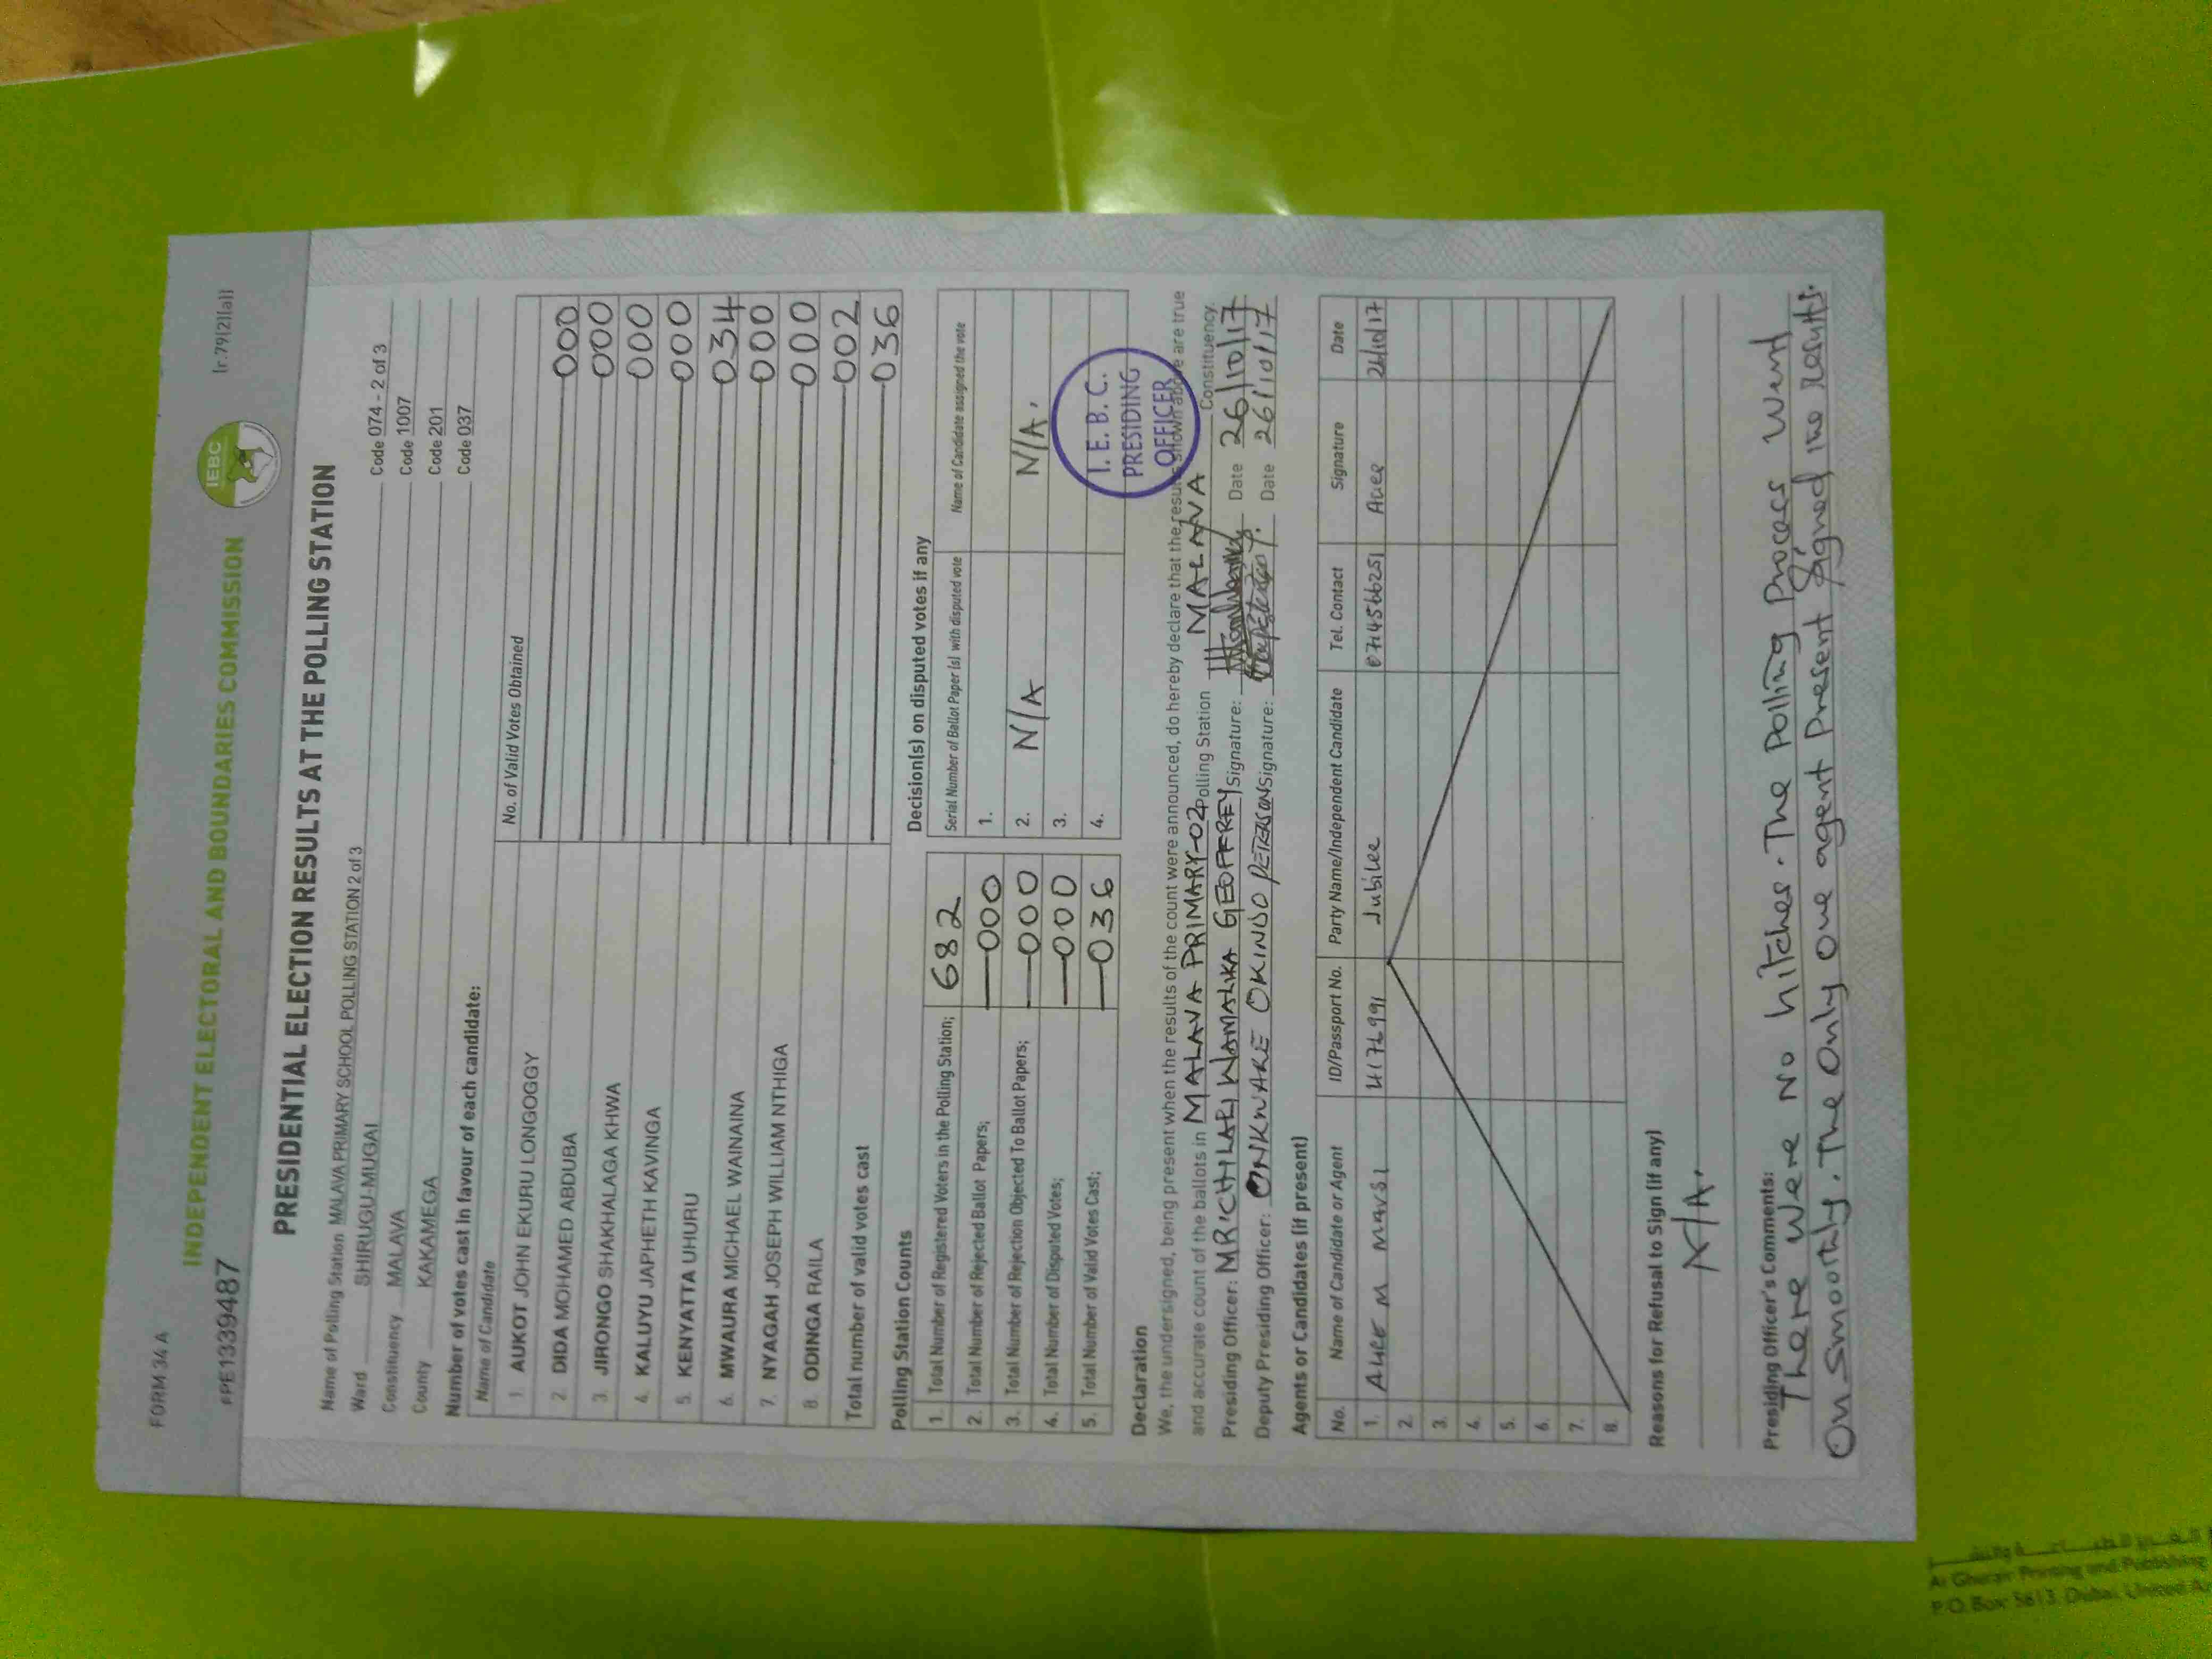 FORM 34 A
(r.79(2)(a))
INDEPENDENT ELECTORAL AND BOUNDARIES COMMISSION
IEBC
PE1339487
PRESIDENTIAL ELECTION RESULTS AT THE POLLING STATION
Name of Polling Station MALAVA PRIMARY SCHOOL POLLING STATION 2 of 3 Code 074 - 2 of 3
Ward SHIRUGU-MUGAI Code 1007
Constituency MALAVA Code 201
County KAKAMEGA Code 037
Number of votes cast in favour of each candidate:
Name of Candidate No. of Valid Votes Obtained
1. AUKOT JOHN EKURU LONGOGGY 000
2. DIDA MOHAMED ABDUBA 000
3. JIRONGO SHAKHALAGA KHWA 000
4. KALUYU JAPHETH KAVINGA 000
5. KENYATTA UHURU 034
6. MWAURA MICHAEL WAINAINA 000
7. NYAGAH JOSEPH WILLIAM NTHIGA 000
8. ODINGA RAILA 002
Total number of valid votes cast 036
Polling Station Counts
1. Total Number of Registered Voters in the Polling Station; 682
2. Total Number of Rejected Ballot Papers; 000
3. Total Number of Rejection Objected To Ballot Papers; 000
4. Total Number of Disputed Votes; 000
5. Total Number of Valid Votes Cast; 036
Decision(s) on disputed votes if any
Serial Number of Ballot Paper (s) with disputed vote Name of Candidate assigned the vote
1.
2. N/A N/A.
3.
4.
I. E. B. C.
PRESIDING
OFFICER
Declaration
We, the undersigned, being present when the results of the count were announced, do hereby declare that the results shown above are true
and accurate count of the ballots in MALAVA PRIMARY-02 Polling Station MALAVA Constituency.
Presiding Officer: MRICHILARI WAMALIKA GEOFFREY Signature: Date 26/10/17
Deputy Presiding Officer: ONKWARE OKINDO PETERSON Signature: Date 26/10/17
Agents or Candidates (if present)
No. Name of Candidate or Agent ID/Passport No. Party Name/Independent Candidate Tel. Contact Signature Date
1. 4176991 Jubilee 0714566251 26/10/17
2.
3.
4.
5.
6.
7.
8.
Reasons for Refusal to Sign (if any)
N/A.
Presiding Officer's Comments:
There Were No hitches. The Polling Process Went
On Smoothly. The Only one agent Present Signed the results.
Al Ghurair Printing and Publishing
P.O. Box: 5613, Dubai, United